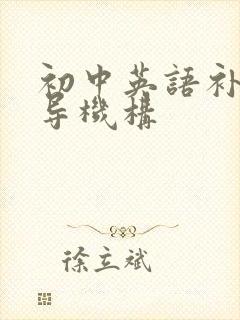 初中英語补
导機構
徐立斌